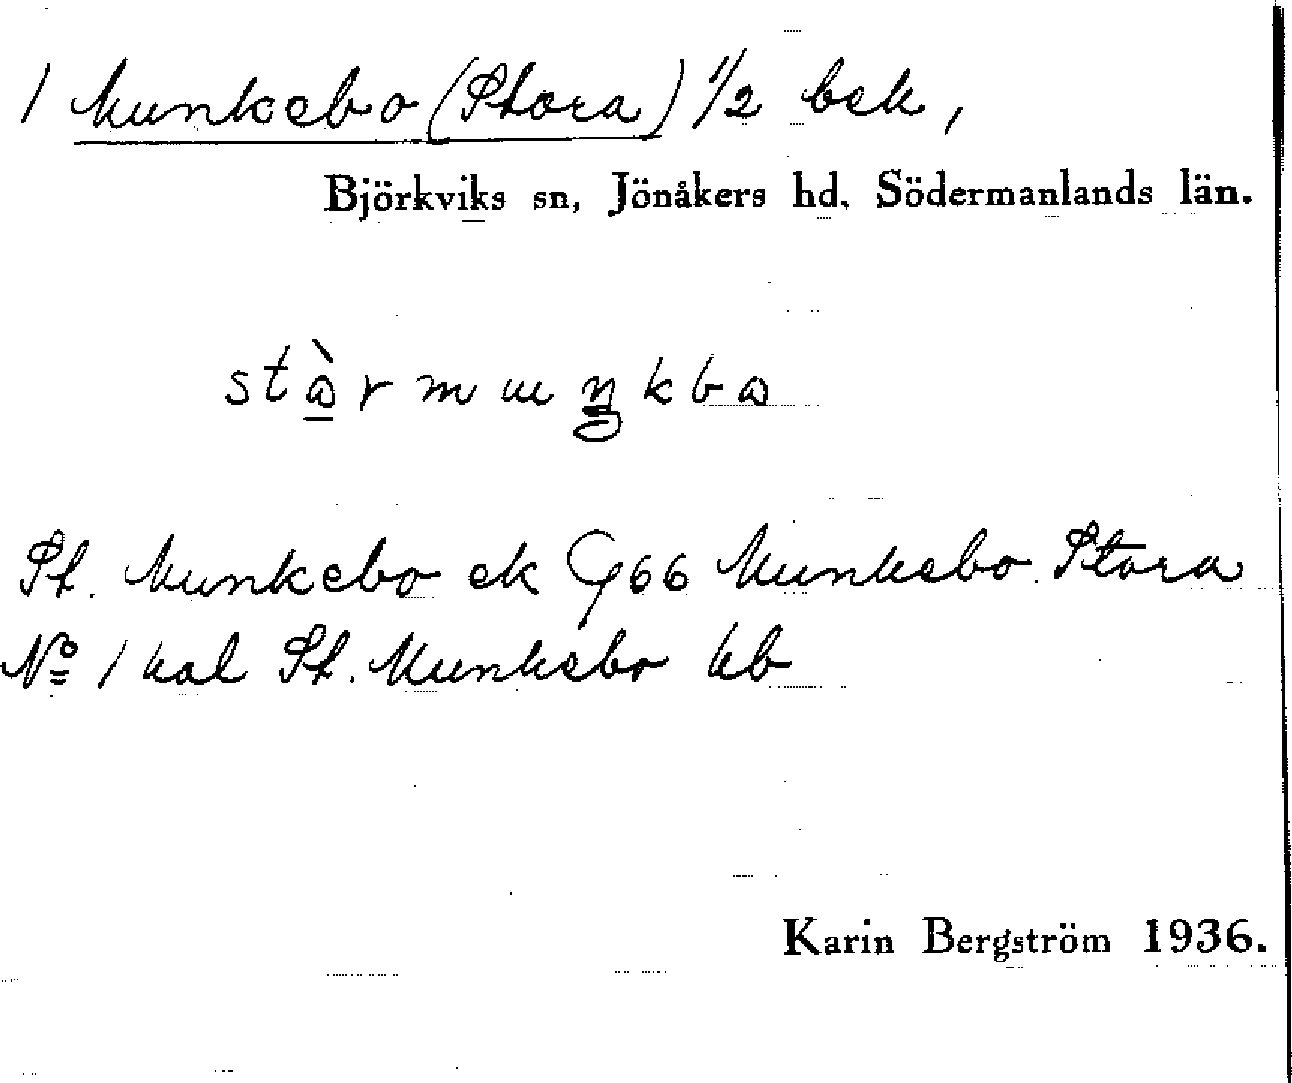 1 Munkebo (Stora) 1/2 bek,
Björkviks sn, Jönåkers hd, Södermanlands län.
St. Munkebo ek G 66 Munkebo Stora
No 1 kal St. Munkebo kb
Karin Bergström 1936.